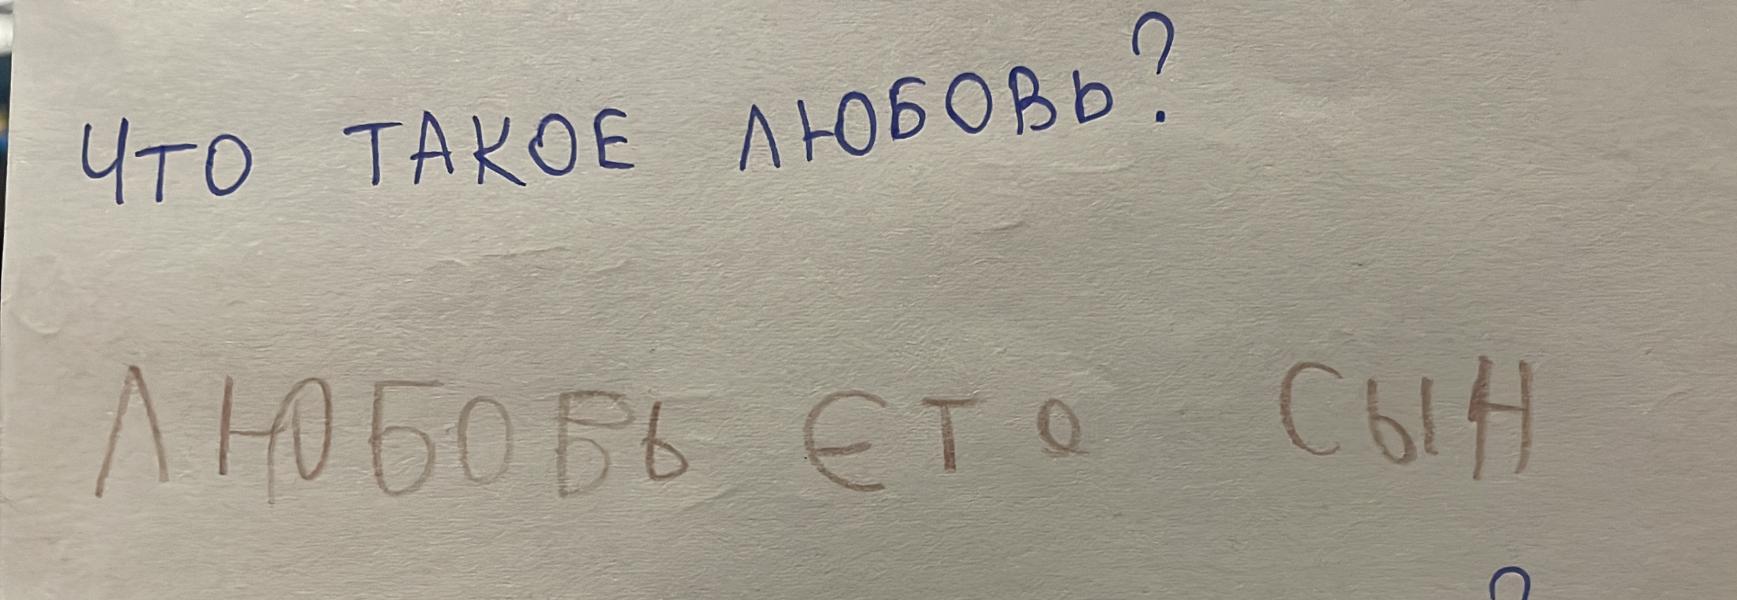 ЧТО ТАКОЕ ЛЮБОВЬ?
ЛЮБОВЬ ЄТО СЫН